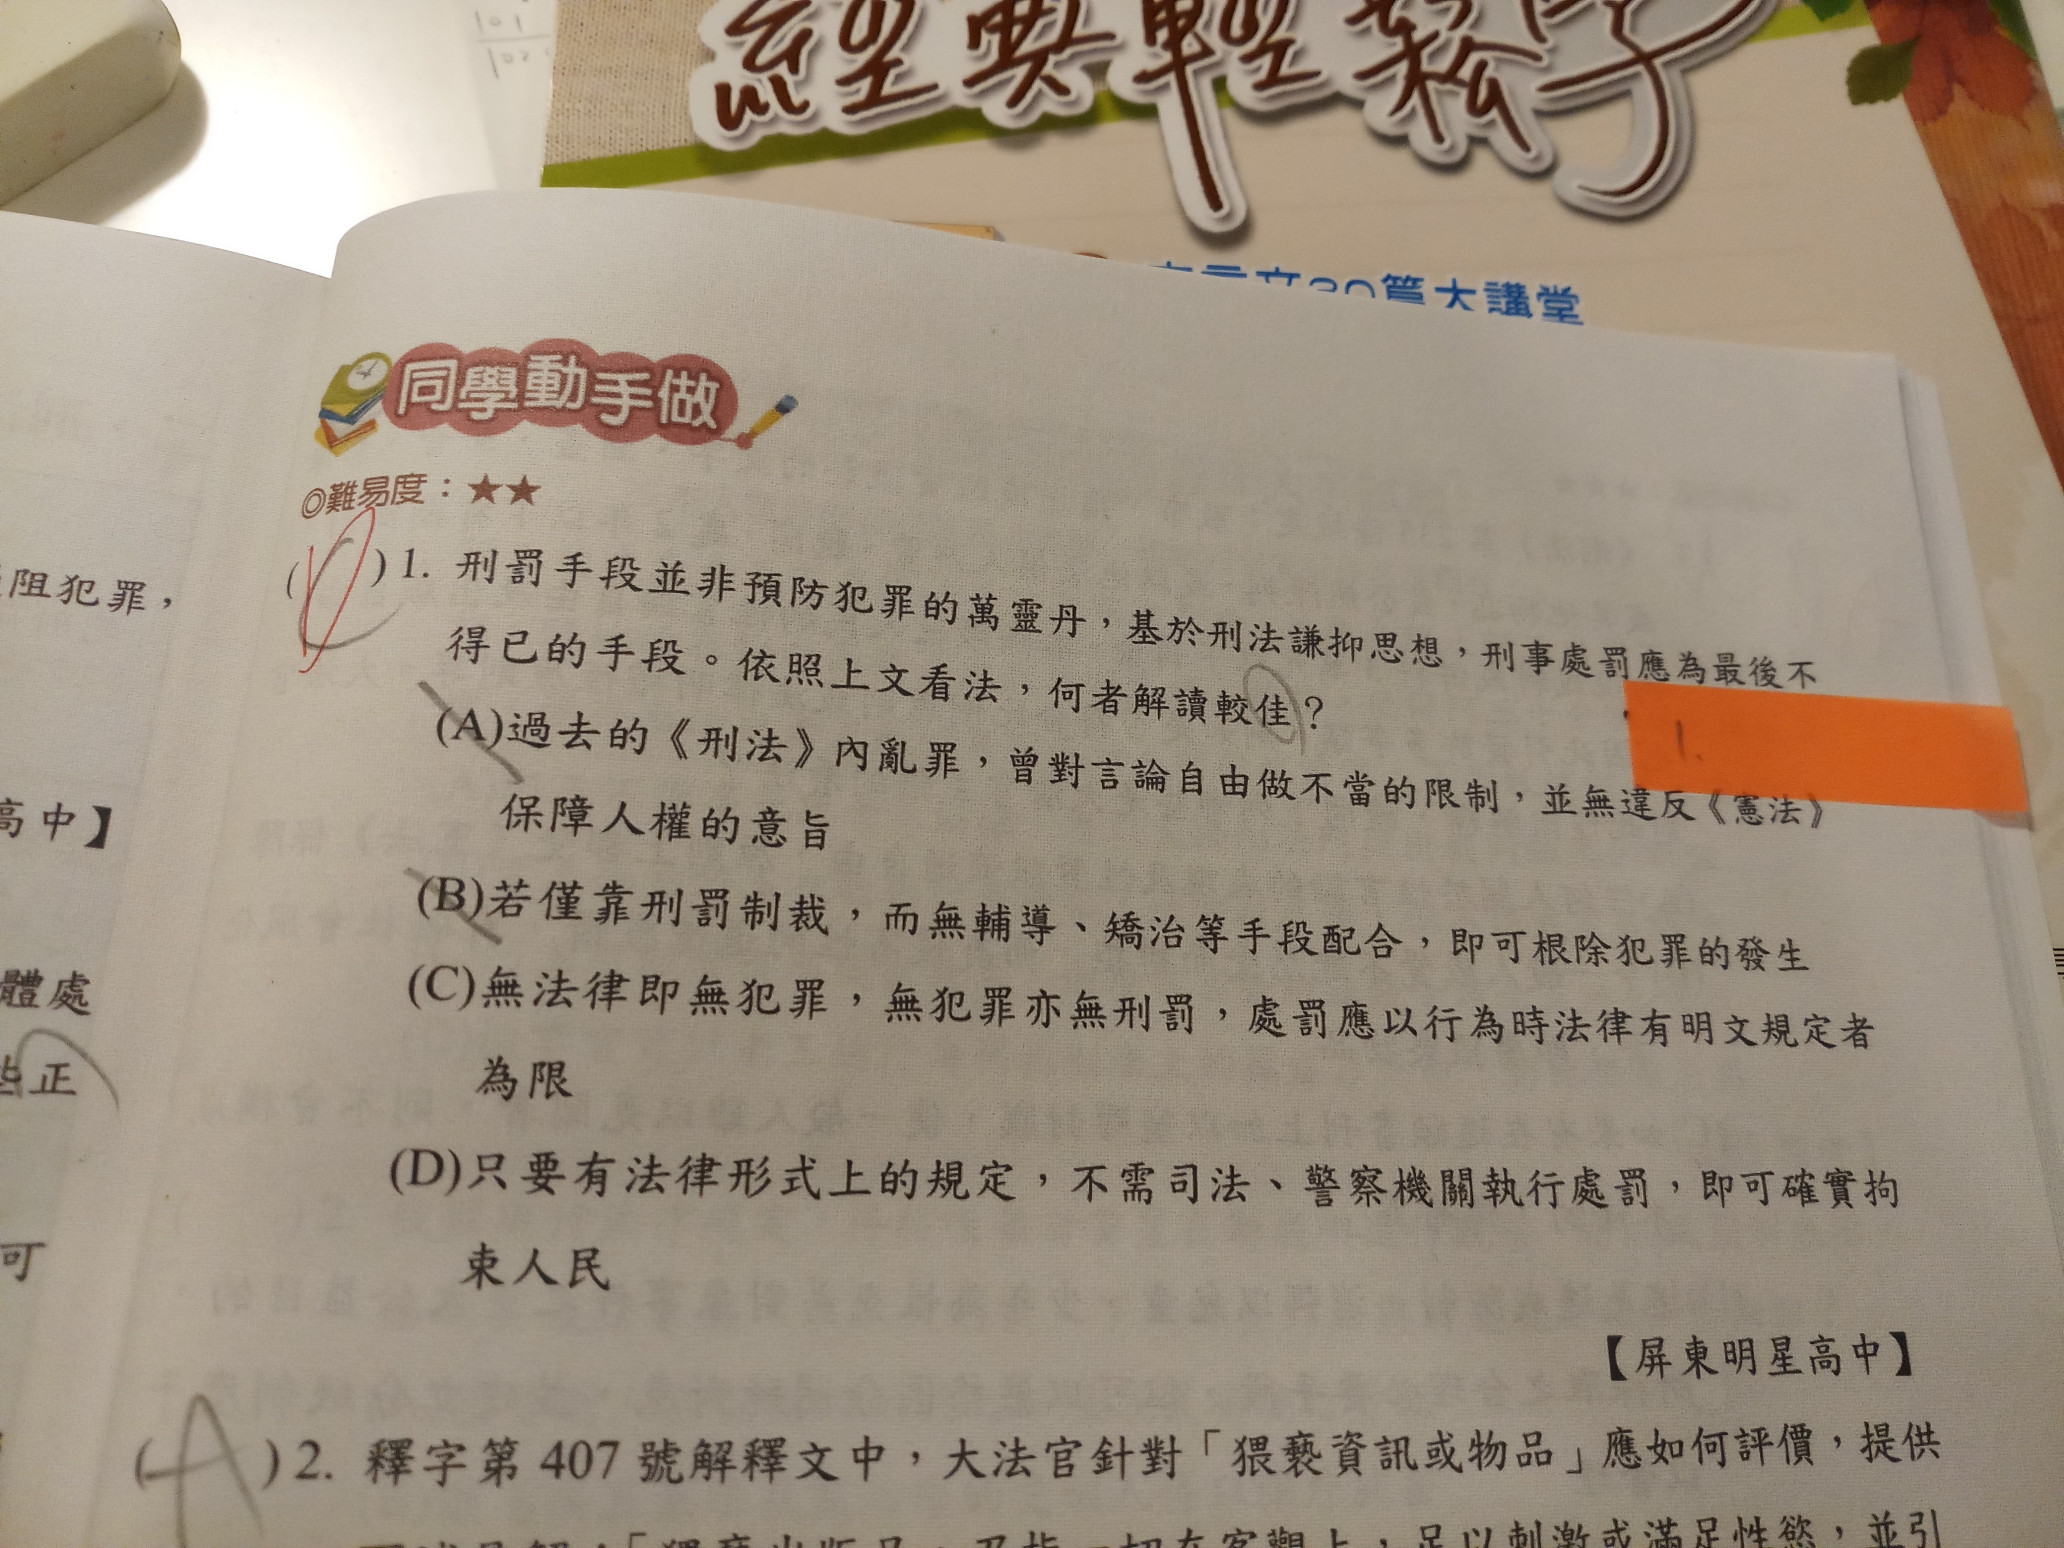 101
102
經典輕鬆學
文言文30篇大講堂
同學動手做
◎難易度：★★
阻犯罪，
高中】
體處
些正
可
( )1. 刑罰手段並非預防犯罪的萬靈丹，基於刑法謙抑思想，刑事處罰應為最後不
得已的手段。依照上文看法，何者解讀較佳？
1.
(A)過去的《刑法》內亂罪，曾對言論自由做不當的限制，並無違反《憲法》
保障人權的意旨
(B)若僅靠刑罰制裁，而無輔導、矯治等手段配合，即可根除犯罪的發生
(C)無法律即無犯罪，無犯罪亦無刑罰，處罰應以行為時法律有明文規定者
為限
(D)只要有法律形式上的規定，不需司法、警察機關執行處罰，即可確實拘
束人民
【屏東明星高中】
(A)2. 釋字第 407 號解釋文中，大法官針對「猥褻資訊或物品」應如何評價，提供
「猥褻出版品，乃指一切在客觀上，足以刺激或滿足性慾，並引